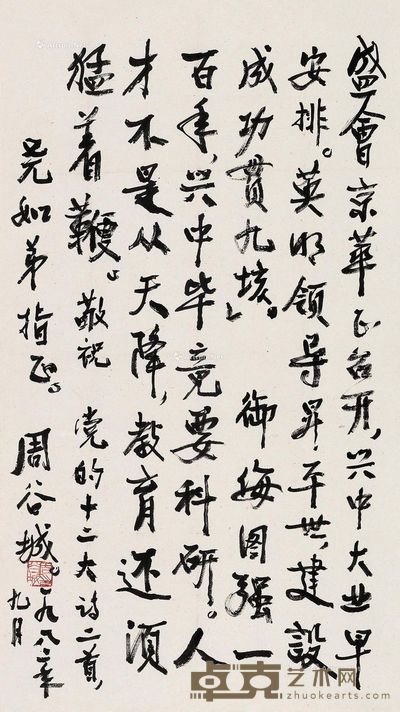 盛會京華正召开，兴中大业早
安排。英明领导昇平世，建設
成功贯九垓。御侮图强一
百年，兴中毕竟要科研。人
才不是从天降，教育还须
猛着鞭。敬祝 党的十二大诗二首，
尧如弟指正。
周谷城。一九八二年
九月
卓克艺术网
zhuokearts.com